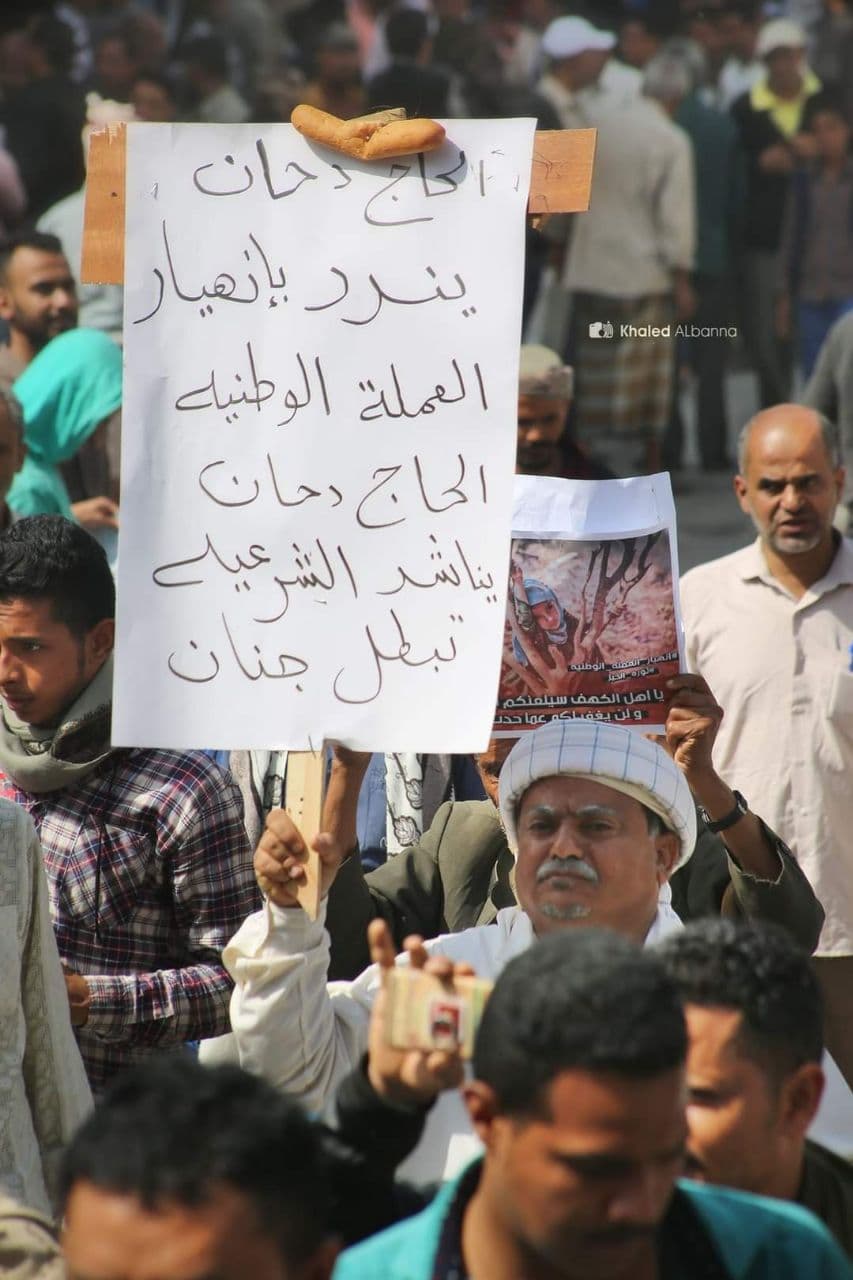 الحاج دحان
يندد بإنهيار
العملة الوطنيه
الحاج دحان
يناشد الشرعيه
تبطل جنان
Khaled ALbanna
#انهيار_العملة_الوطنية
#ثورة_الخبز
يا اهل الكهف سيلعنكم
ولن يغفر لكم عما حدث